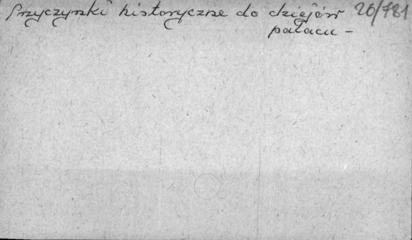 Przyczynki historyczne do dziejów 26/781
pałacu –